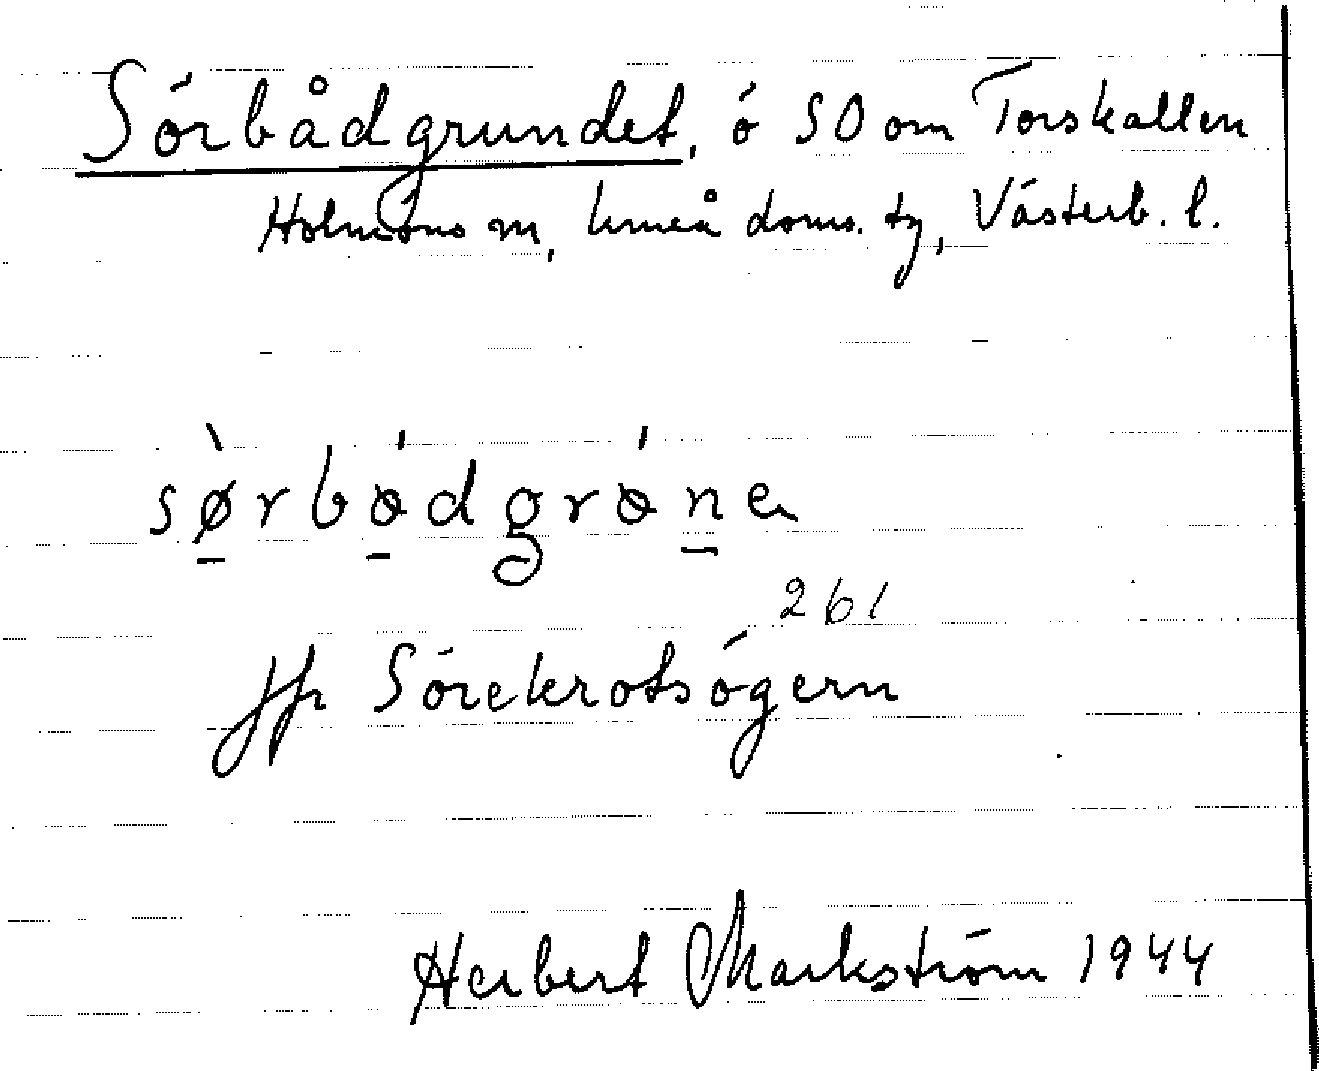 Sörbådgrundet, ö SO om Torskallen
Holmöns sn, Umeå doms. tg, Västerb. l.
sørbådgrønen
261
jfr Sörekrotsögern
Herbert Markström 1944